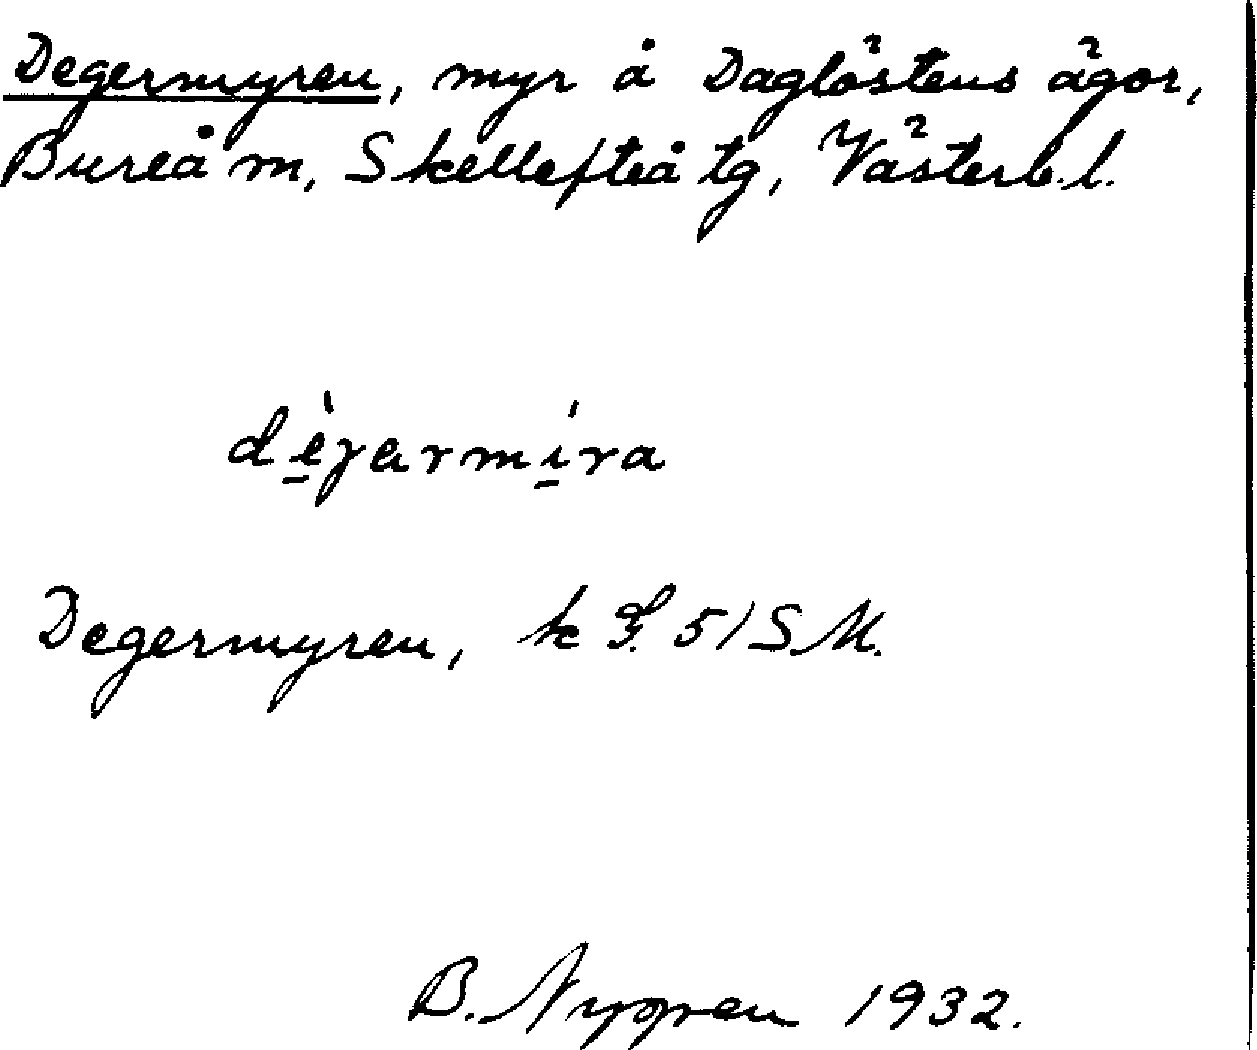 Degermyren, myr å Daglöstens ägor,
Bureå m, Skellefteå tg, Västerb. l.
dèγarmíra
Degermyren, k 51 S.M.
B. Nygren 1932.